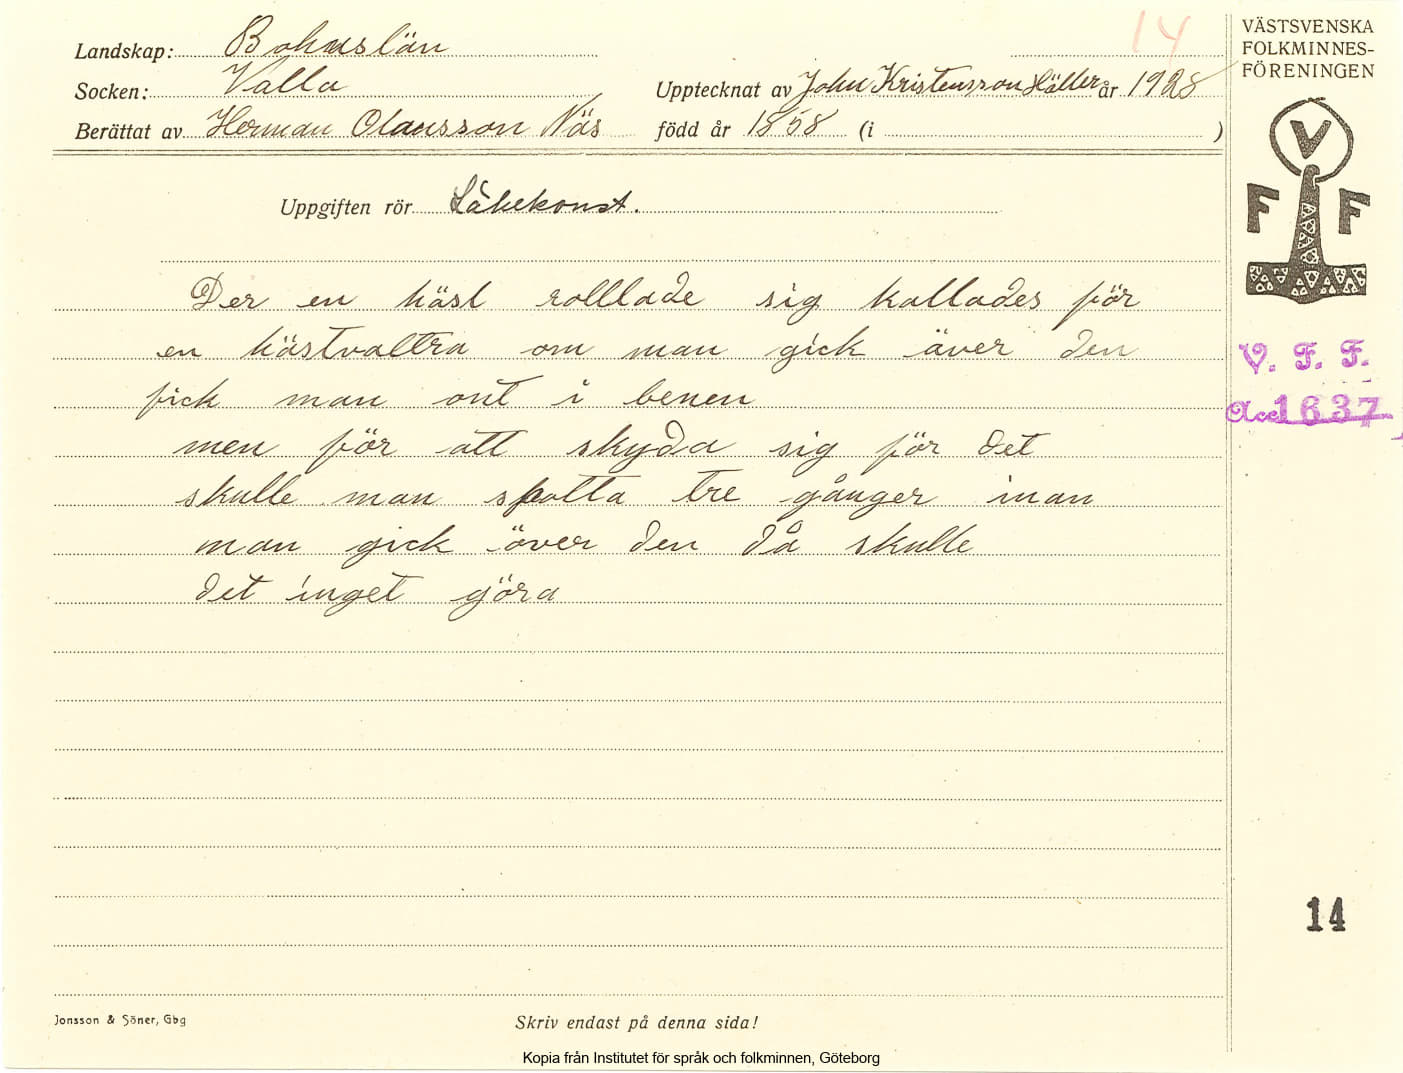 14
VÄSTSVENSKA
FOLKMINNES-
FÖRENINGEN
Landskap: Bohuslän
Socken: Valla
Upptecknat av John Kristensson Häller år 1928
Berättat av Herman Olausson Näs född år 1858 (i )
V
F F
Uppgiften rör Läkekonst.
Der en häst rolllade sig kallades för
en hästvaltra om man gick över den
fick man ont i benen
men för att skyda sig för det
skulle man spotta tre gånger inan
man gick över den då skulle
det inget göra
V. F. F.
Acc 1637
14
Jonsson & Söner, Gbg
Skriv endast på denna sida!
Kopia från Institutet för språk och folkminnen, Göteborg